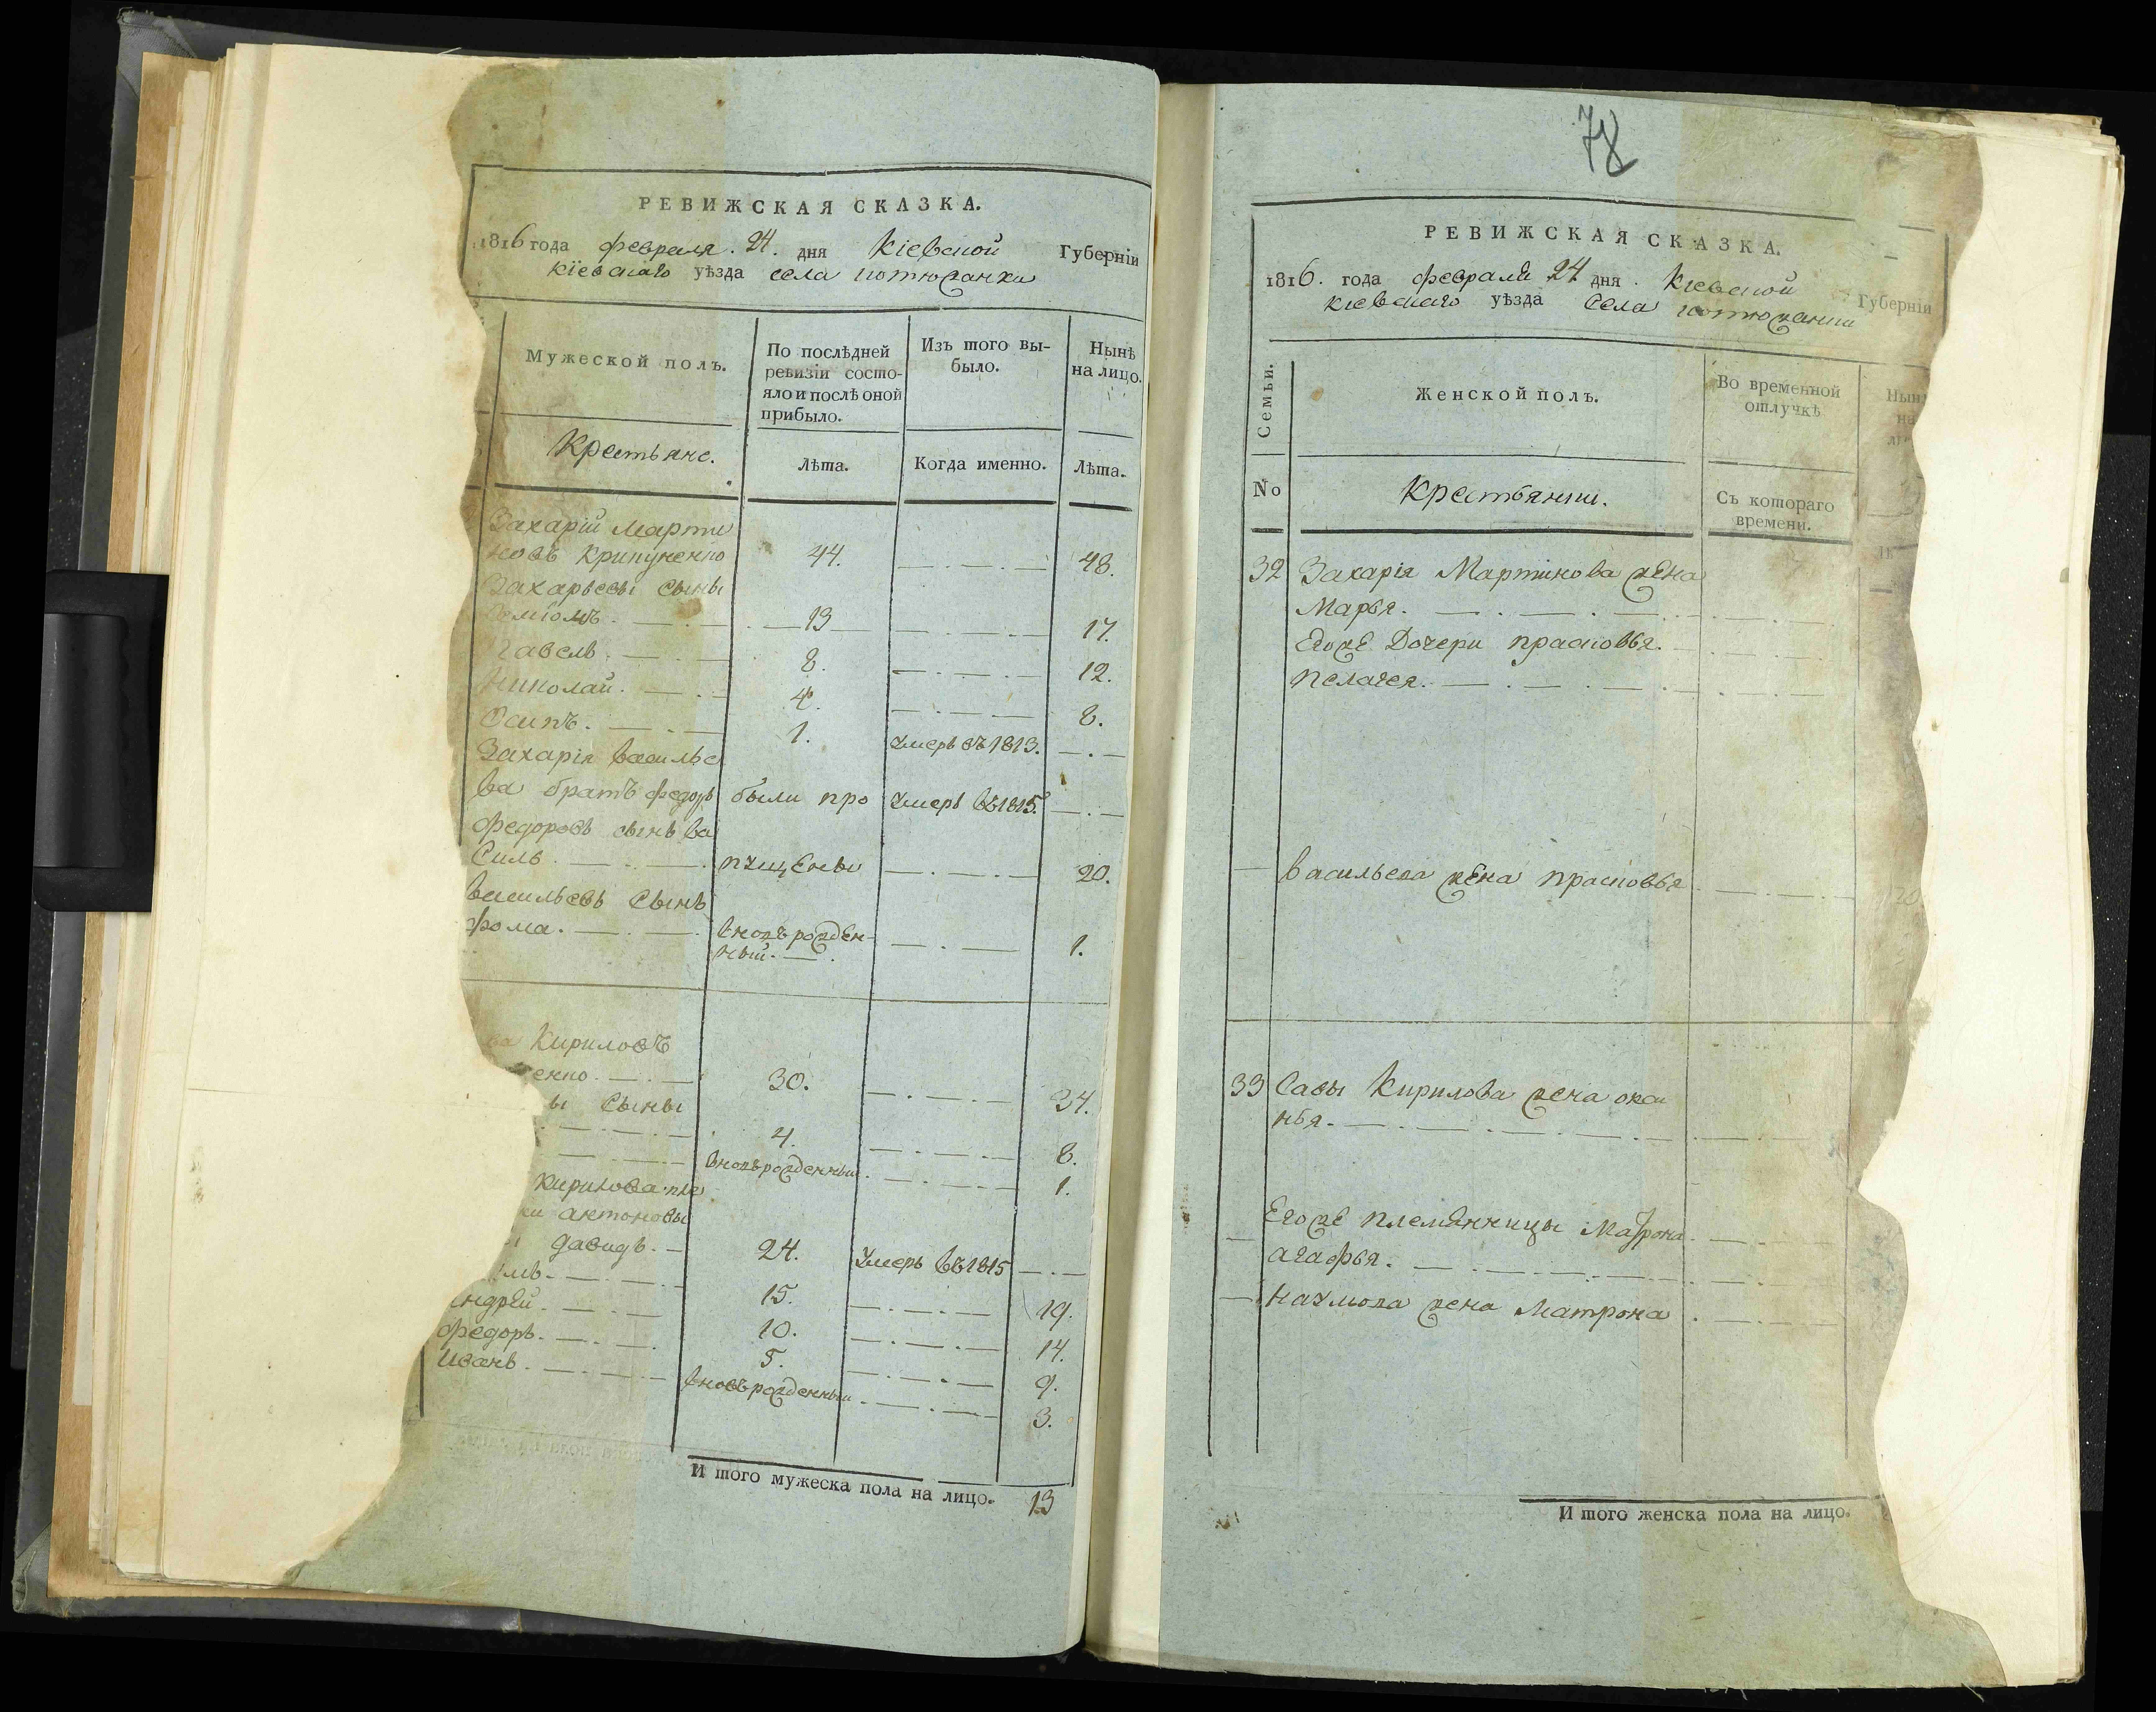 РЕВИЖСКАЯ СКАЗКА.
1816 года февраля. 24. дня Кіевской Губерніи
кіевскаго уѣзда села
Мужеской полъ.
По послѣдней
ревизіи состо-
яло и послѣ оной
прибыло.
Изъ того вы-
было.
Нынѣ
на лицо.
Крестьяне.
Лѣта.
Когда именно.
Лѣта.
Захарій Марти
новъ Крипуненко 44. 48.
Захарьевы сыны
13 17.
Павелъ. 8. 12.
Николай. 4. 8.
Осипъ. 1. Умеръ въ 1813.
Захарія василье
ва братъ федоръ были про Умеръ въ 1815.
федоровъ сынъ ва
силь. пущены 20.
васильевъ сынъ
фома. вновърожден-
ный. 1.
Кириловъ
енко. 30. 34.
ы сыны
4. 8.
вновърожденный. 1.
Кирилова пле
ки антоновы
давидъ. 24. Умеръ въ 1815
15. 19.
ндрей. 10. 14.
федоръ. 5. 9.
Иванъ. вновърожденный. 3.
И того мужеска пола на лицо. 13
78
РЕВИЖСКАЯ СКАЗКА.
1816. года февраля 24 дня. Кіевской Губерніи
кіевскаго уѣзда села
Семьи.
Женской полъ.
Во временной
отлучкѣ
Нын
на
No
Крестьянки.
Съ котораго
времени.
32 Захарія Мартинова жена
Марья.
Егоже Дочери прасковья.
пелагея.
васильева жена прасковья
33 Савы Кирилова жена окси
нья.
Егоже племянницы Матрона
агафья.
жена Матрона
И того женска пола на лицо.